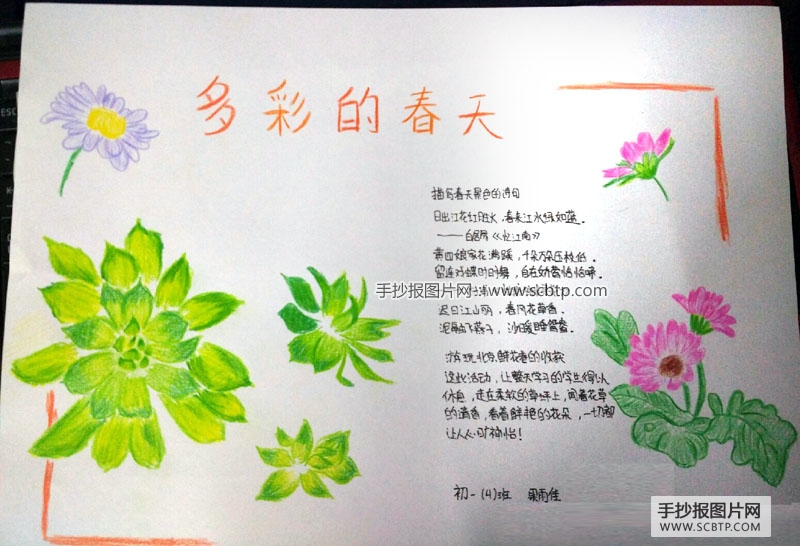 多彩的春天
描写春天景色的诗句
日出江花红胜火,春来江水绿如蓝。
——白居易《忆江南》
黄四娘家花满蹊,千朵万朵压枝低。
留连戏蝶时时舞,自在娇莺恰恰啼。
手抄报图片网 www.scbtp.com
迟日江山丽,春风花草香。
泥融飞燕子,沙暖睡鸳鸯。
游玩北京鲜花港的收获
这此活动,让整天学习的学生得以
休息,走在柔软的草坪上,闻着花草
的清香,看着鲜艳的花朵,一切都
让人心旷神怡!
初一(4)班 梁雨佳
手抄报图片网
WWW.SCBTP.COM
ESC